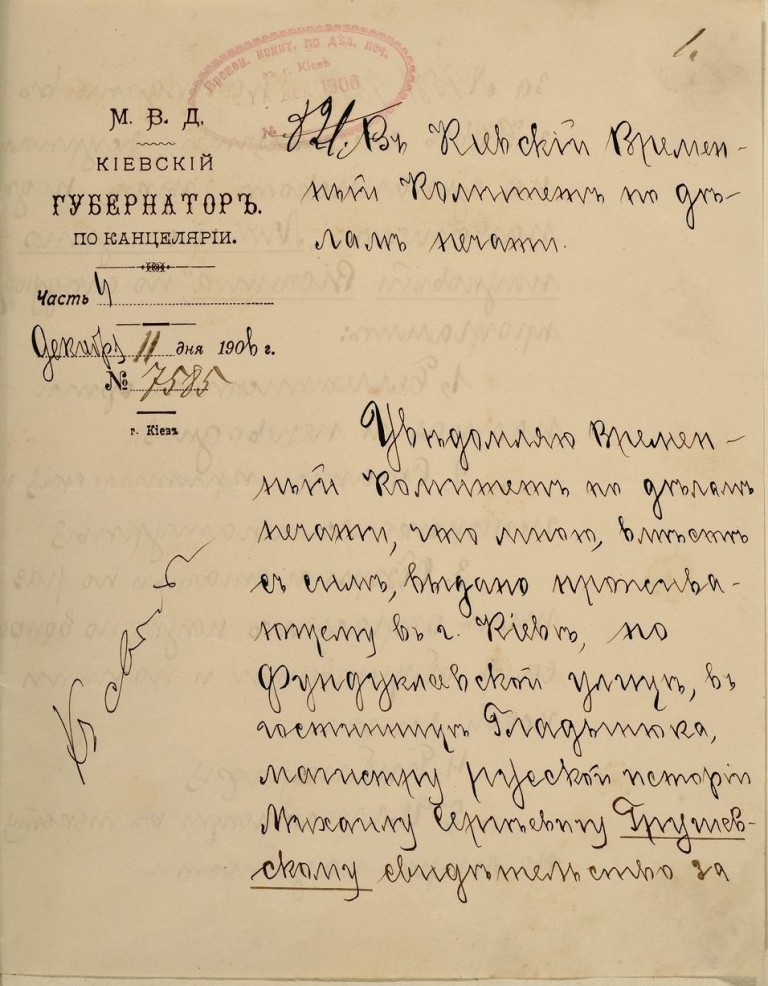 1.
Времен. комит. по дѣл. печ.
въ г. Кіевѣ
1906
№
М. В. Д.
КІЕВСКІЙ
ГУБЕРНАТОРЪ.
ПО КАНЦЕЛЯРІИ.
Часть 4
Декабр. 11 дня 1906 г.
№ 7585
г. Кіевъ
Въ Кіевскій Времен-
ный Комитетъ по дѣ-
ламъ печати.
Увѣдомляю Времен-
ный Комитетъ по дѣламъ
печати, что мною, вмѣстѣ
съ симъ, выдано прожива-
ющему въ г. Кіевѣ, по
Фундуклеевской улицѣ, въ
гостинницѣ Гладынюка,
магистру русской исторіи
Михаилу Сергѣевичу Грушев-
скому свидѣтельство за